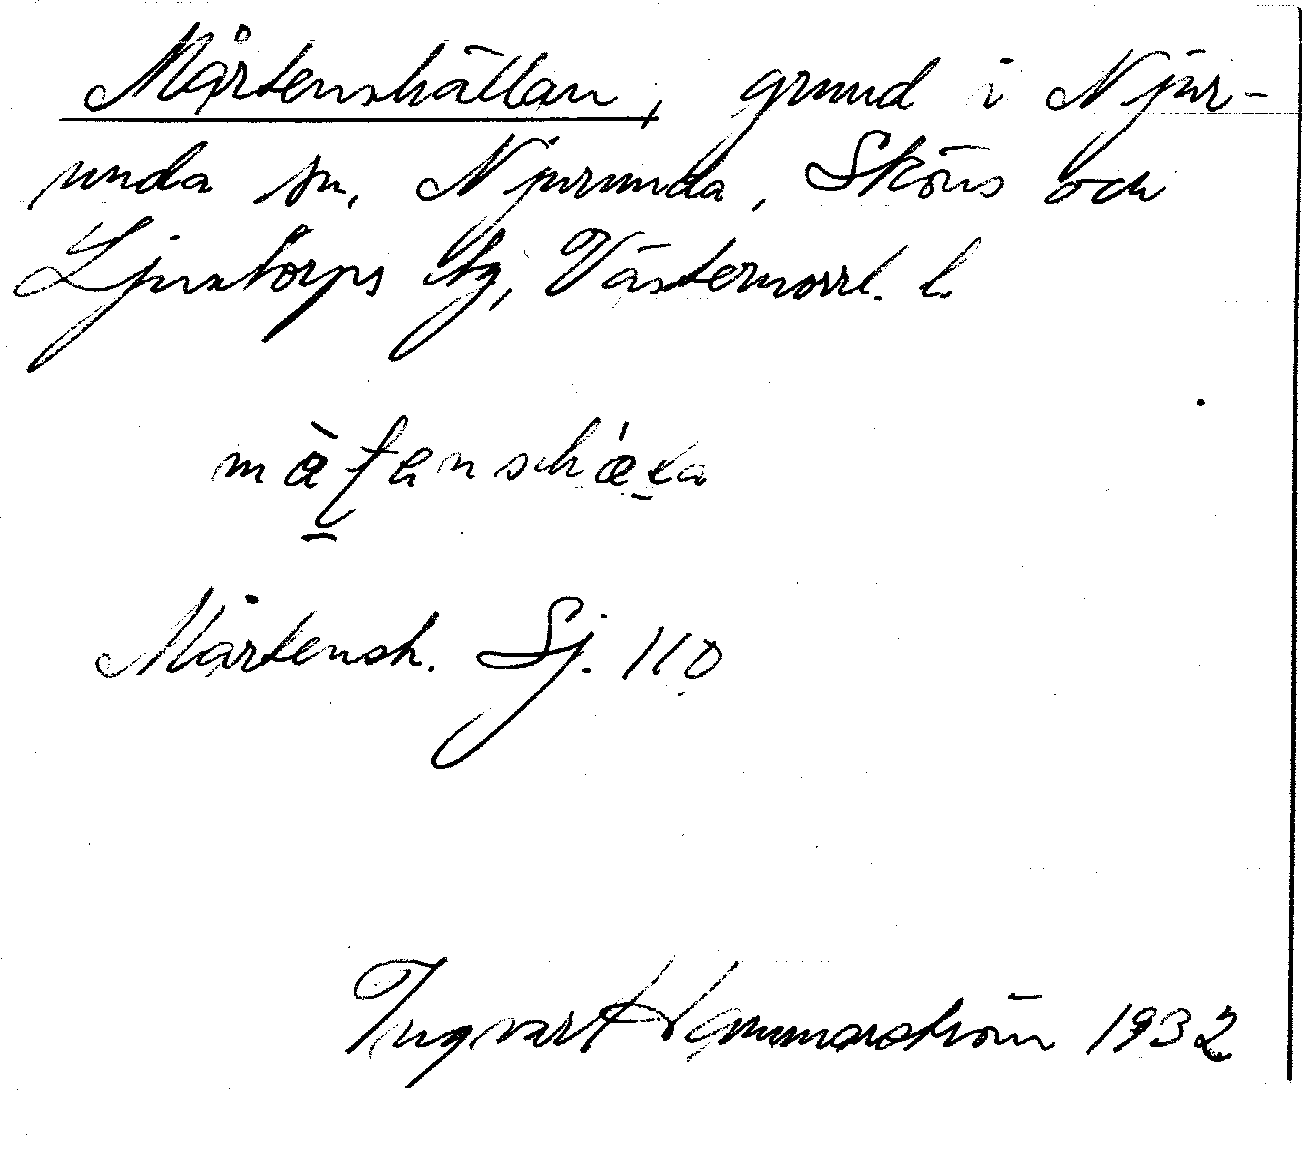 Mårtenshällan, grund i Njur-
unda sn, Njurunda, Sköns och
Ljustorps tg, Västernorrl. l.
Mårtensh. Sj. 110
Ingvar Hammarström 1932